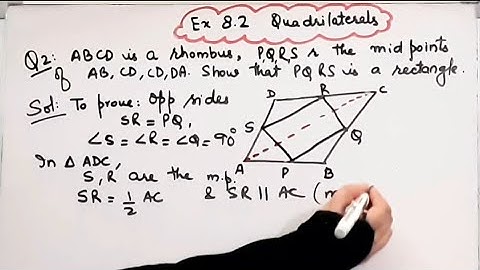 Ex 8.2 Quadrilaterals
Q2: ABCD is a rhombus, P,Q,R,S r the mid points
of AB, CD, CD, DA. Show that PQRS is a rectangle.
Sol: To prove: Opp sides
SR = PQ,
∠S = ∠R = ∠Q = 90°
In △ ADC,
S, R are the m.p.
SR = 1/2 AC & SR || AC (m
D R C
S Q
A P B